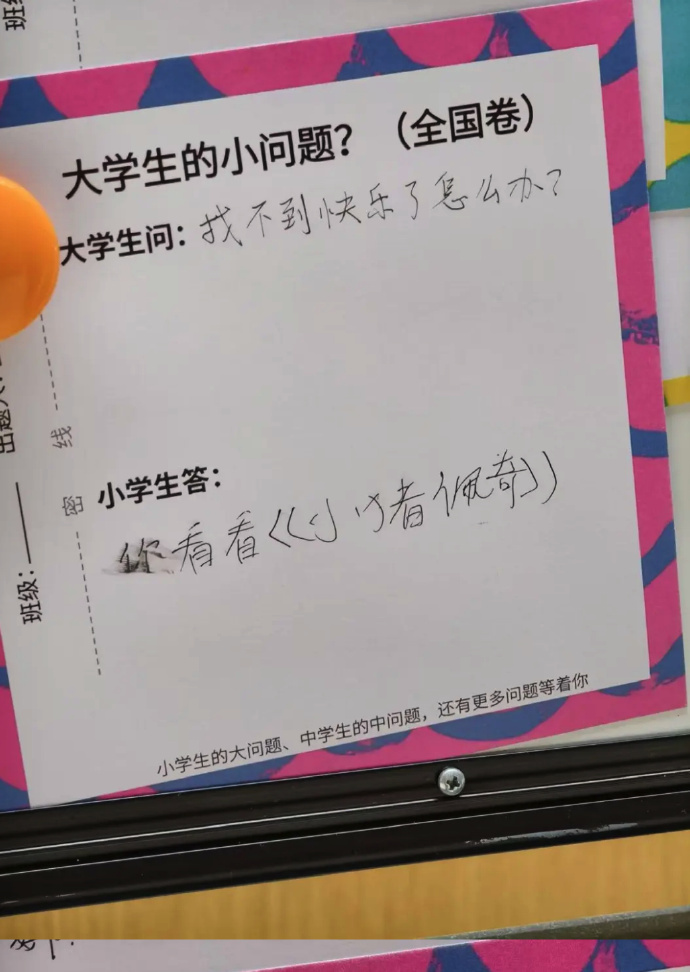 班级
大学生的小问题？（全国卷）
大学生问：找不到快乐了怎么办？
线
密
小学生答：
你看看《小猪佩奇》
班级：
小学生的大问题、中学生的中问题，还有更多问题等着你